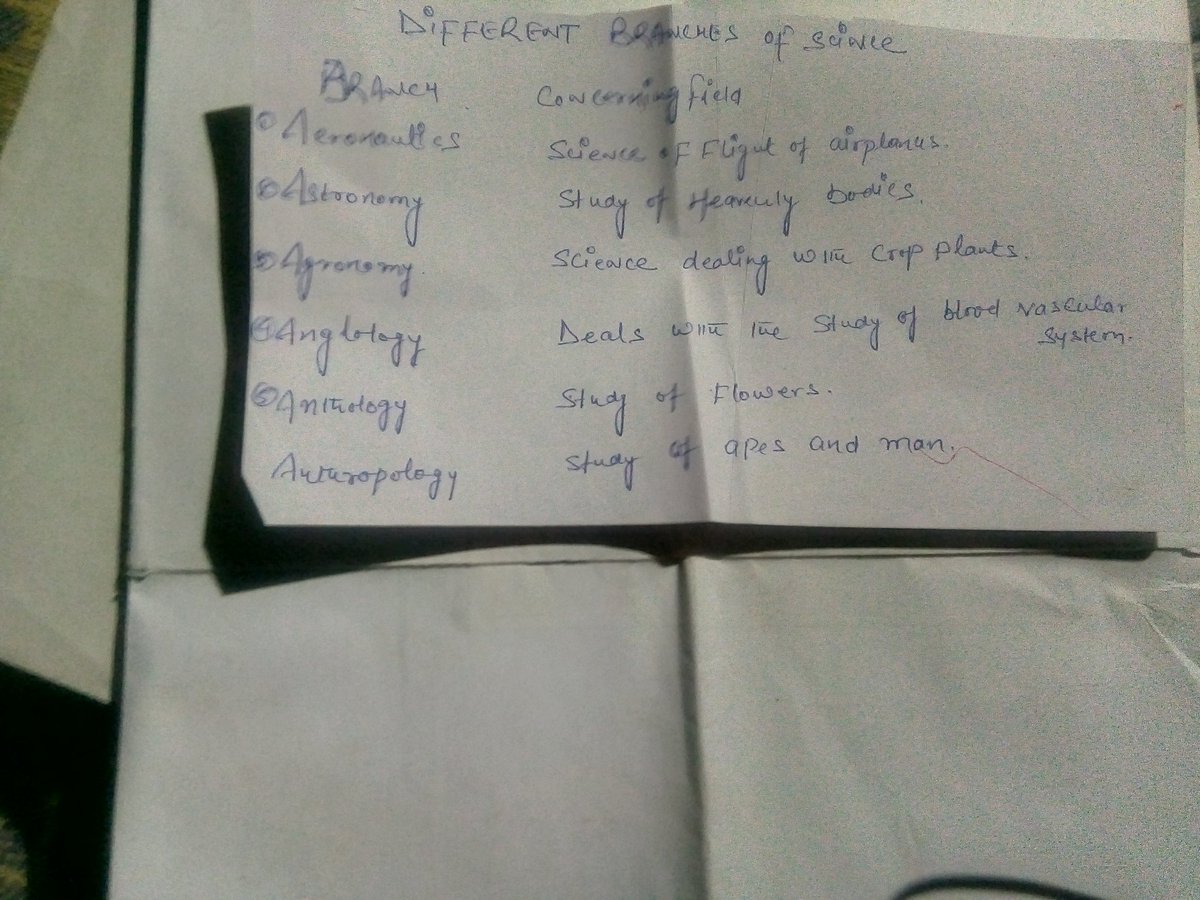 DIFFERENT BRANCHES of Science
BRANCH Concerning field
① Aeronautics Science of Flight of airplanes.
② Astronomy Study of Heavenly bodies.
③ Agronomy. Science dealing with Crop Plants.
④ Angiology Deals with the Study of blood vascular
System.
⑤ Anthology Study of Flowers.
Anthropology Study of apes and man.